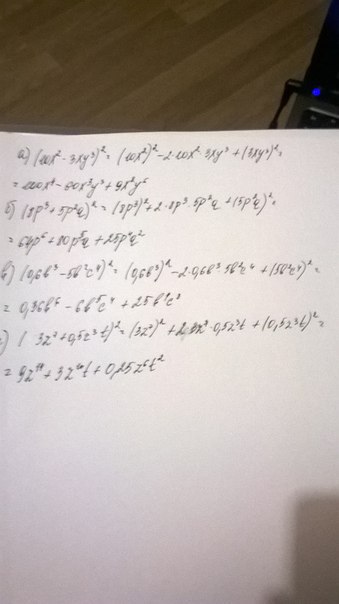 а) (10x² - 3xy³)² = (10x²)² - 2·10x²·3xy³ + (3xy³)² =
= 100x⁴ - 60x³y³ + 9x²y⁶
б) (8p³ + 5p²q)² = (8p³)² + 2·8p³·5p²q + (5p²q)² =
= 64p⁶ + 80p⁵q + 25p⁴q²
в) (0,6b³ - 5b²c⁴)² = (0,6b³)² - 2·0,6b³·5b²c⁴ + (5b²c⁴)² =
= 0,36b⁶ - 6b⁵c⁴ + 25b⁴c⁸
) ( 3z⁷ + 0,5z³t)² = (3z⁷)² + 2·3z⁷·0,5z³t + (0,5z³t)² =
= 9z¹⁴ + 3z¹⁰t + 0,25z⁶t²